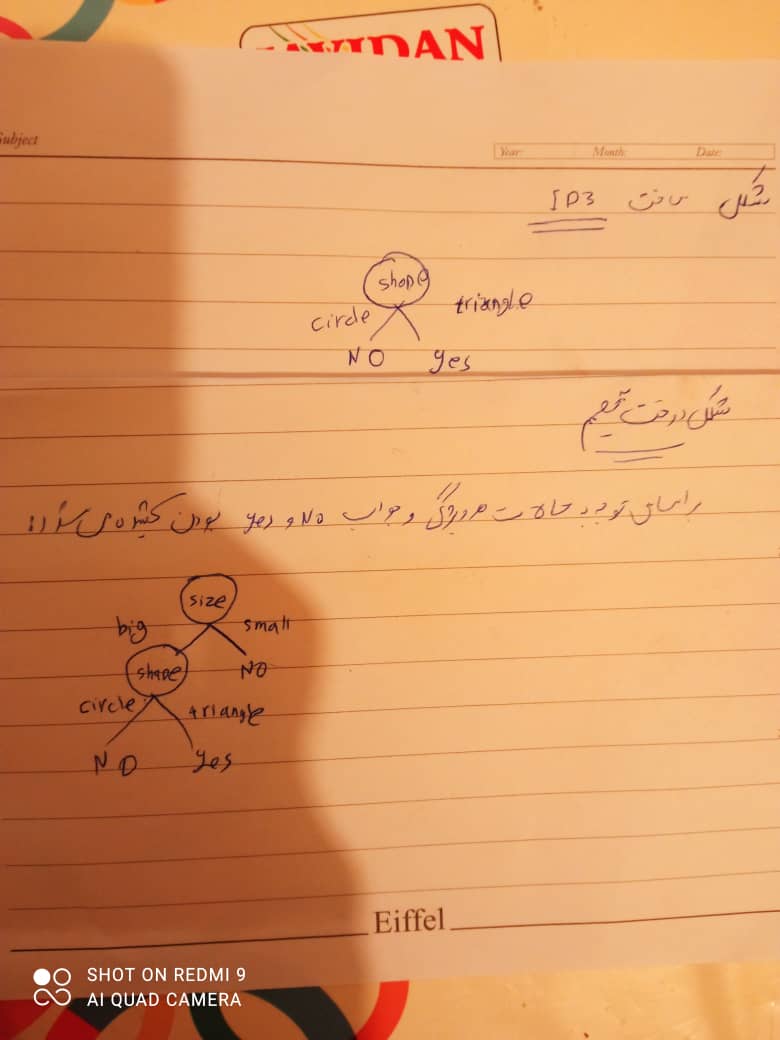 JAVIDAN
Subject
Year: Month: Date:
شکل ساخت ID3
shape
circle triangle
NO Yes
شکل درخت تصمیم
براساس توجه به حالات هر ویژگی و جواب No و yes بودن کشیده می شود:
size
big small
shape NO
circle triangle
NO Yes
Eiffel
SHOT ON REDMI 9
AI QUAD CAMERA